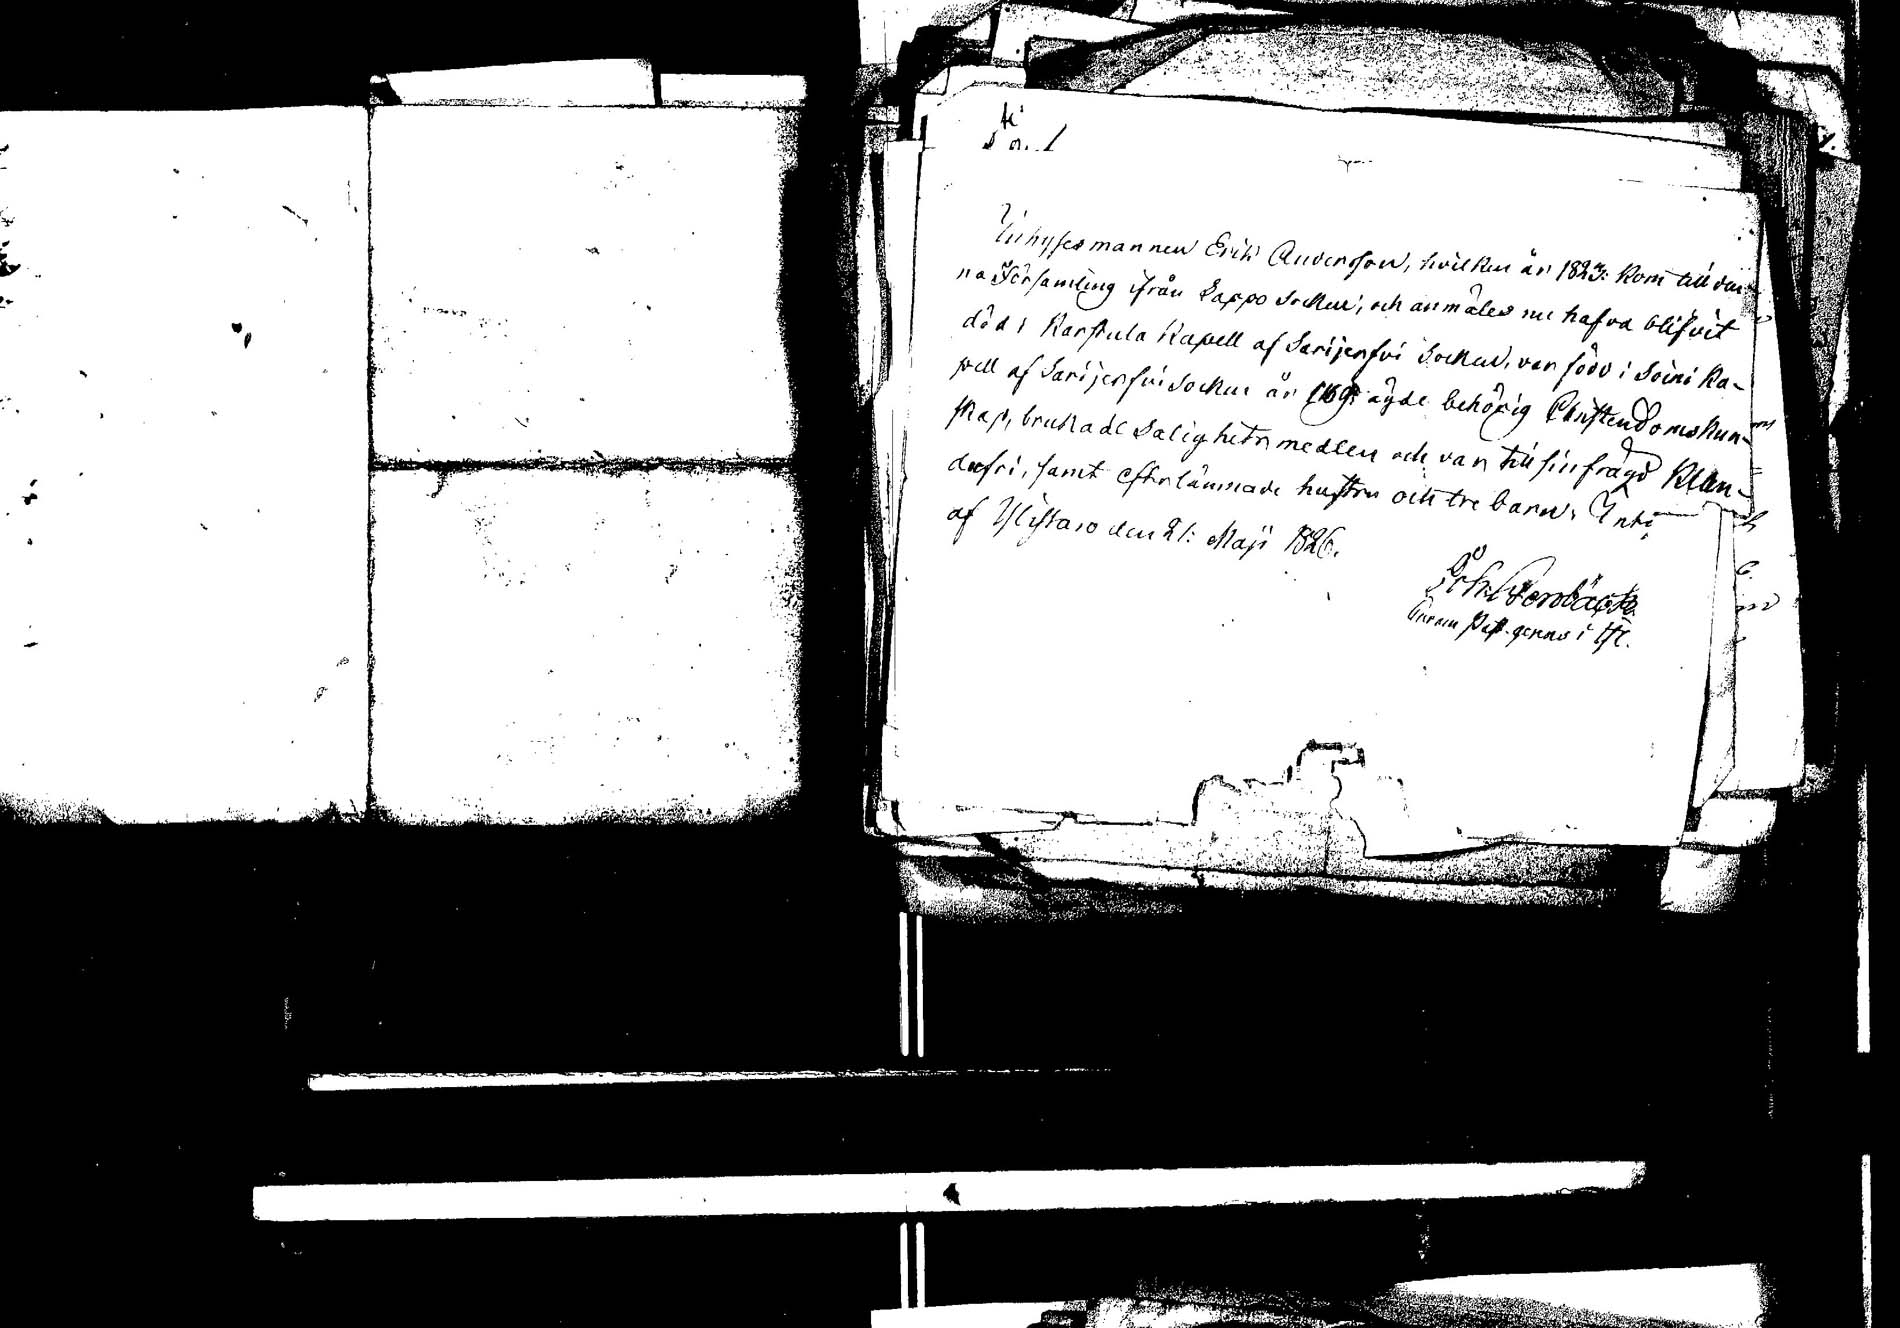 Inhyses mannen Erik Andersson, hvilken år 1823: kom till den-
na Församling ifrån Lappo Socken, och anmäles nu hafva blifvit
död i Karstula Kapell af Sarijerfvi Socken, var född i Soini Ka-
pell af Sarijerfvi Socken år ägde behörig Christendomskun-
skap, brukade Salighetsmedlen och var till sin frägd Klan-
derfri, samt efterlämnade hustru och tre barn.
af Ylistaro den 21: Maji 1826.
i